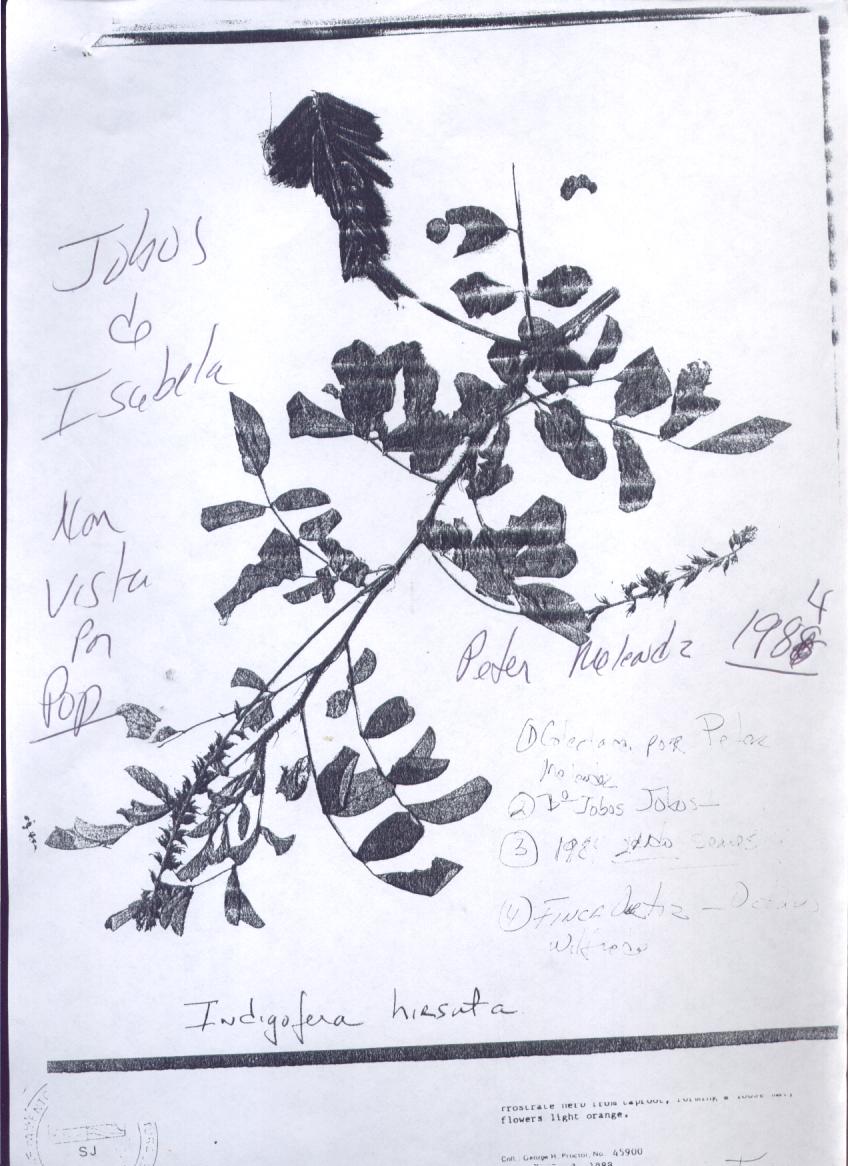 Jobos
de
Isabela
Non
Vista
Por
Pop
Peter Melendz 1984
① Colectara por Peter
② Jobos Jobos
③ 198
④ Finca Ortiz – Octavio
Wilfredo
Indigofera hirsuta
Prostrate herb from taproot, forming a loose mat,
flowers light orange.
Coll. George R. Proctor, No. 45900
SJ